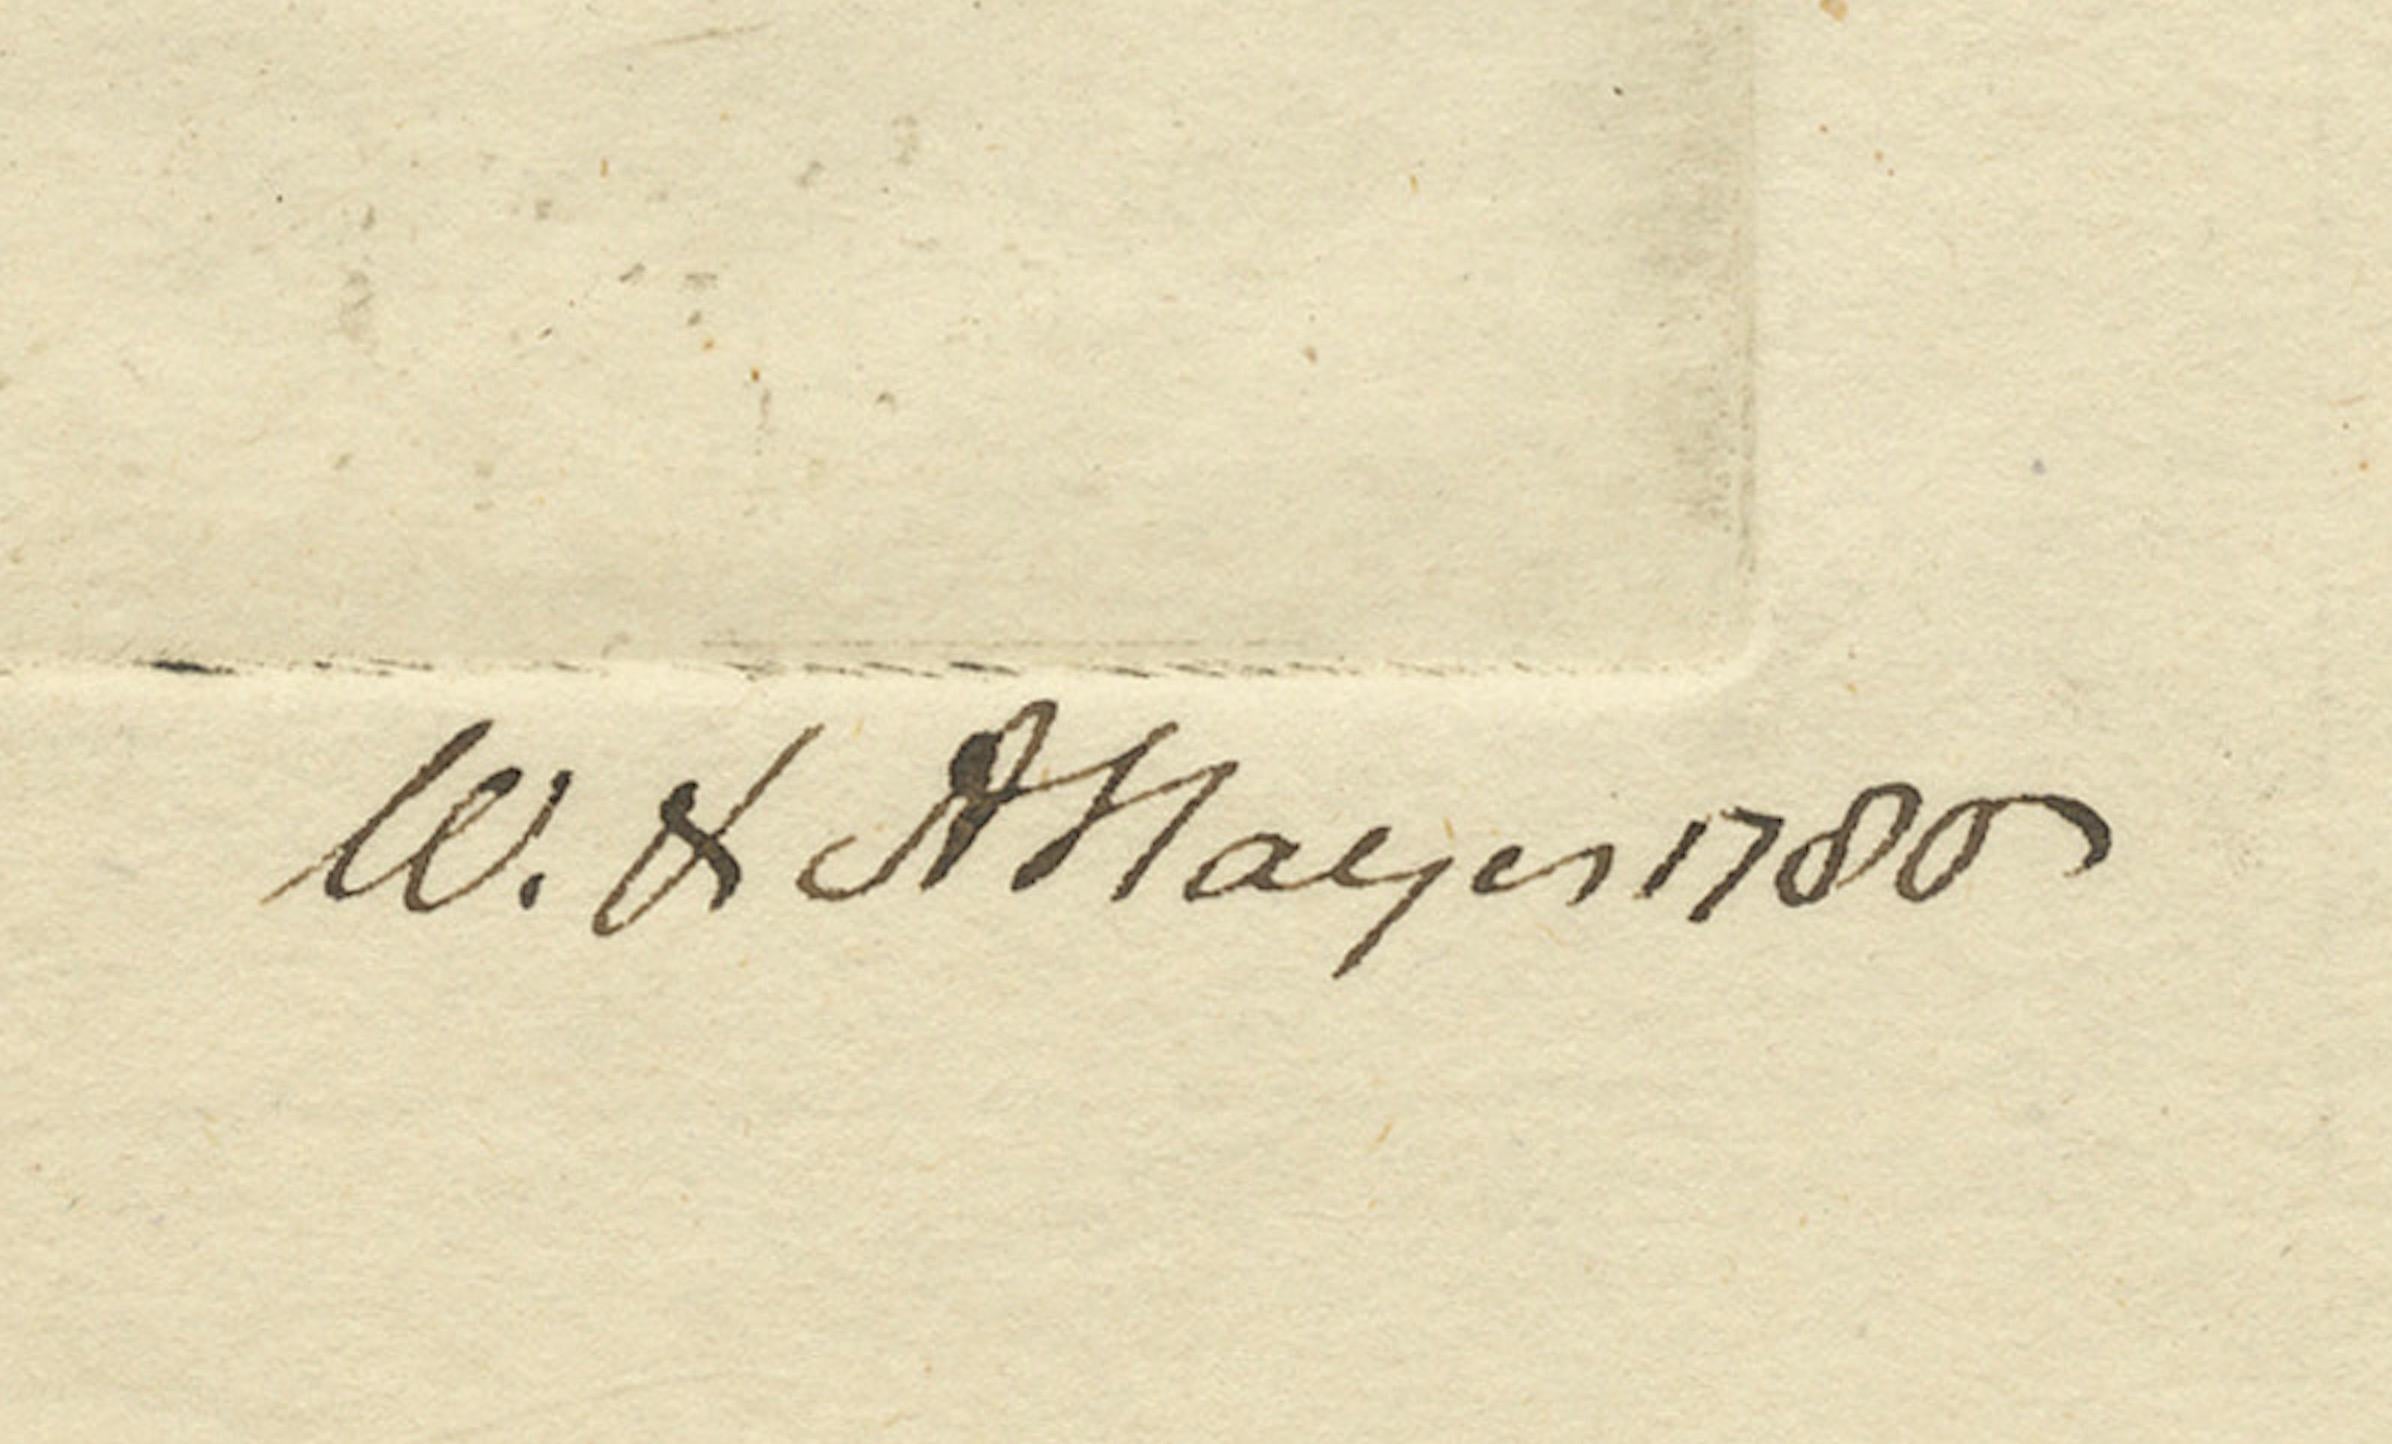 W. & A Hayes 1780